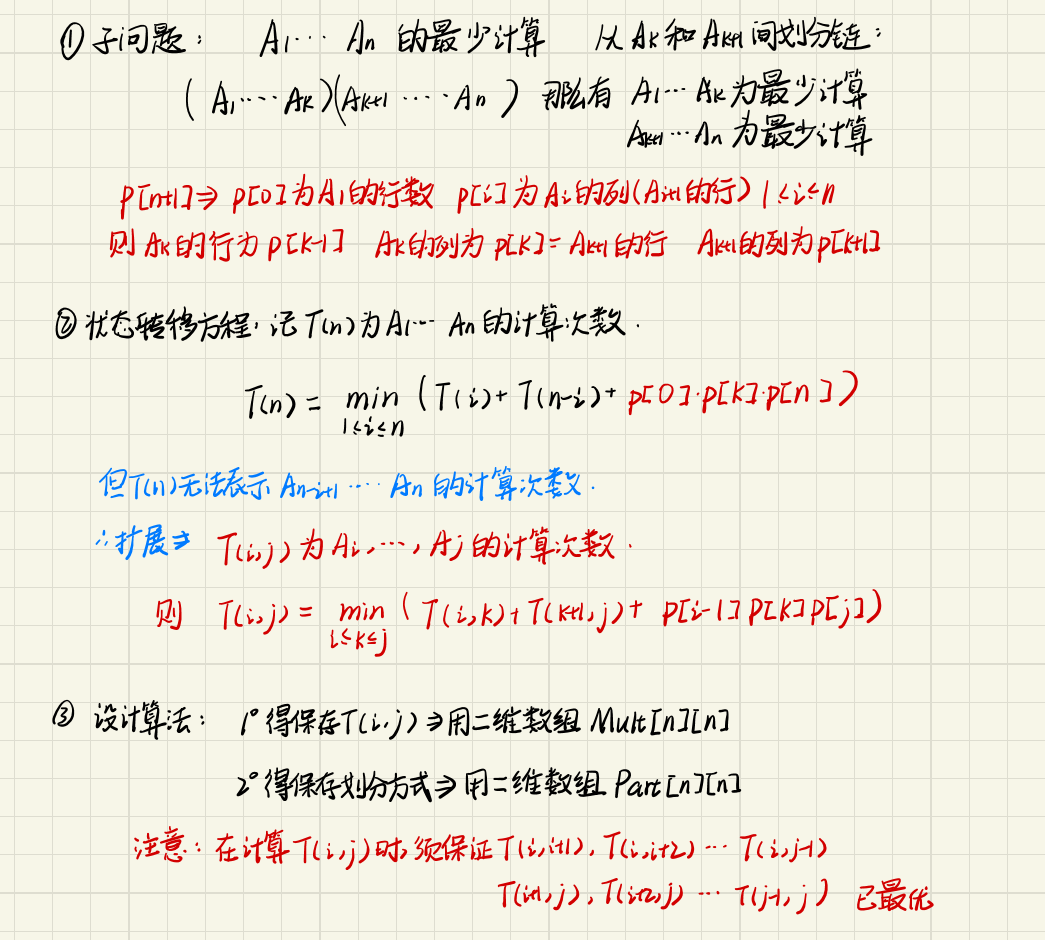 ① 子问题: A1… An 的最少计算 从 Ak 和 Ak+1 间划分链:
(A1……Ak)(Ak+1 ……An) 那么有 A1… Ak 为最少计算
Ak+1…An 为最少计算
p[n+1]⇒ p[0]为A1的行数 p[i]为Ai的列(Ai+1的行) 1≤i≤n
则 Ak的行为 p[k-1] Ak的列为 p[k]= Ak+1 的行 Ak+1的列为p[k+1]
② 状态转移方程, 记 T(n)为A1… An 的计算次数.
T(n) = min (T(i)+ T(n-i)+ p[0]·p[k]·p[n])
1≤i≤n
但T(n)无法表示 An-i+1 …… An 的计算次数.
∴扩展⇒ T(i,j) 为 Ai,…, Aj 的计算次数.
则 T(i,j) = min ( T(i,k)+T(k+1,j)+ p[i-1]p[k]p[j])
i≤k≤j
③ 设计算法: 1° 得保存T(i,j)⇒用二维数组 Mult[n][n]
2° 得保存划分方式⇒用二维数组 Part[n][n]
注意: 在计算T(i,j)时, 须保证T(i,i+1), T(i,i+2) … T(i,j-1)
T(i+1,j), T(i+2,j) … T(j-1, j) 已最优